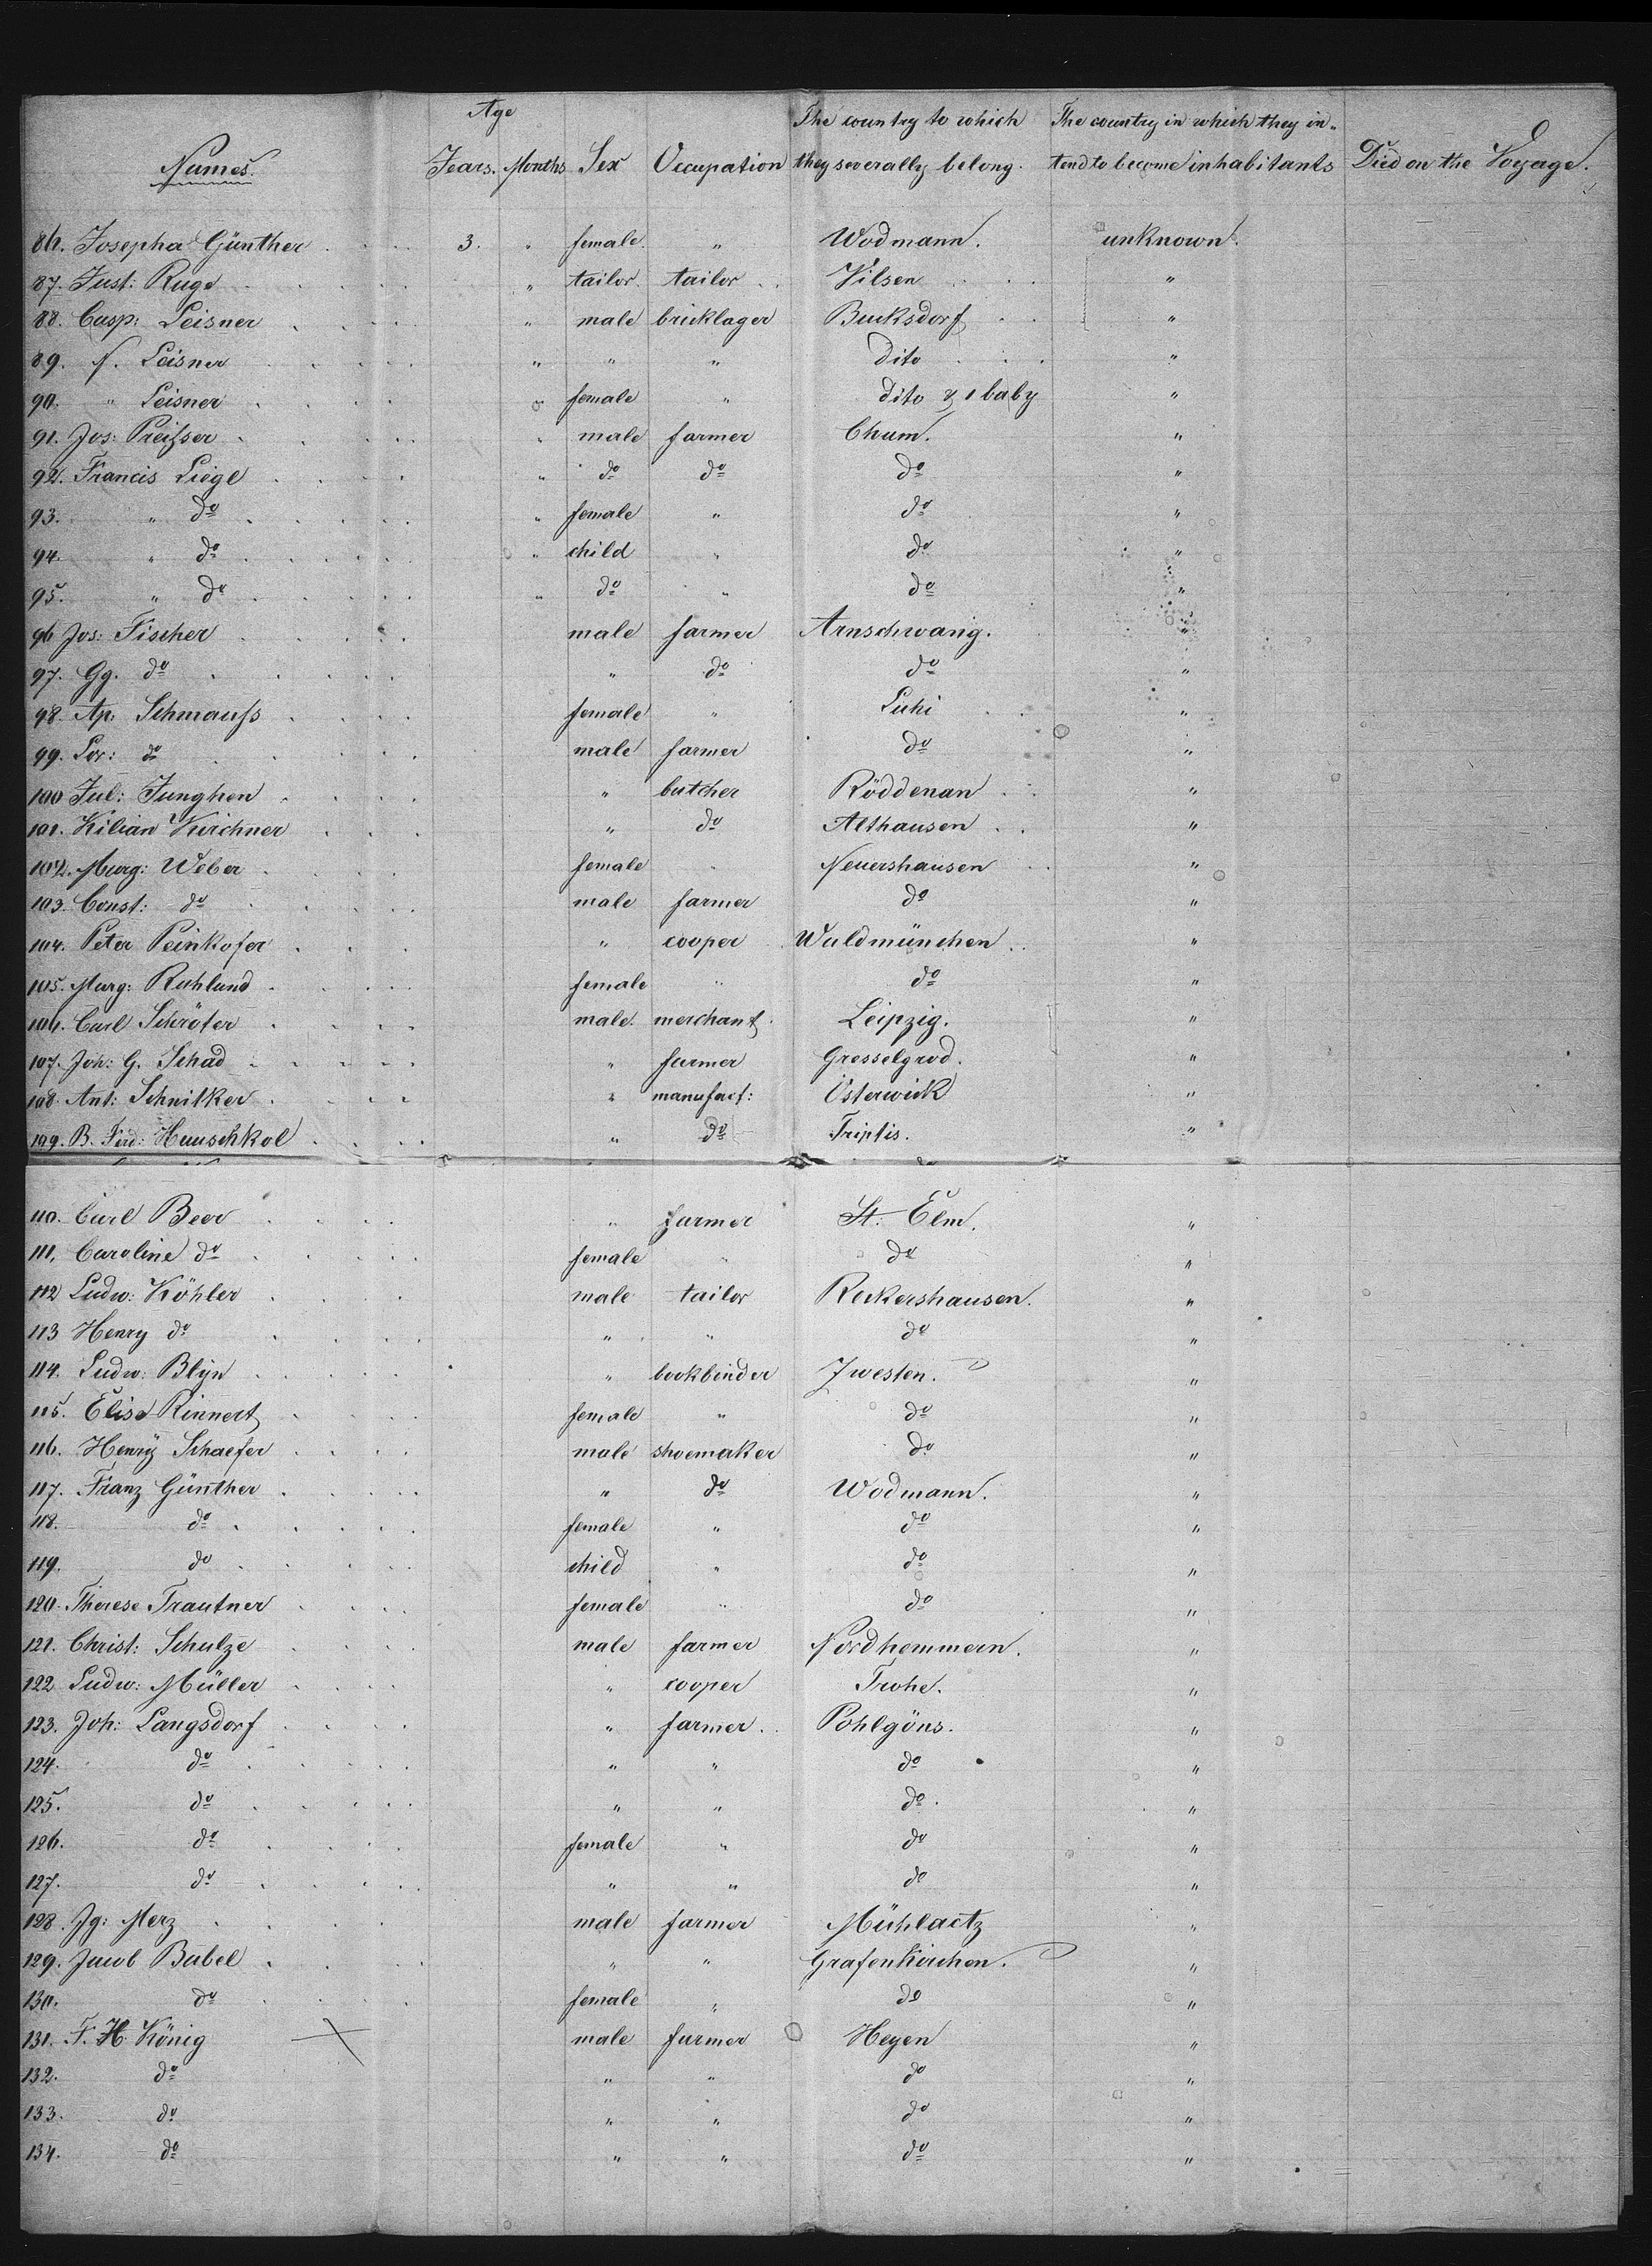 Age The country to which The country in which they in-
Names. Years. Months Sex Occupation they severally belong. tend to become inhabitants Died on the Voyage.
86. Josepha Günther 3. " female " Wodmann. unknown.
87. Just: Ruge " tailor tailor Vilsen "
88. Casp: Leisner " male bricklager Bucksdorf "
89. f. Leisner " " " dito "
90. " Leisner female " dito & 1 baby "
91. Jos: Preifser " male farmer Cham. "
92. Francis Liegl " do do do "
93. " do " female " do "
94. " do " child " do "
95. " do " do " do "
96 Jos: Fischer male farmer Arnschwang. "
97. Gg. do " do do "
98. Ap. Schmaufs female " Luhi "
99. Lor: do male farmer do "
100 Jul: Junghen " butcher Röddenau "
101. Kilian Kirchner " do Althausen "
102. Marg: Weber female " Neuershausen "
103. Const: do male farmer do "
104. Peter Peinkofer " cooper Waldmünchen "
105. Marg: Ruhland female " do "
106. Carl Schröter male. merchant Leipzig. "
107. Joh: G. Schad " farmer Gresselgrod. "
108. Ant: Schnitker " manufact: Osterwick "
109. B. Ferd: Hauschkol " do Triptis. "
110. Carl Beer " farmer St: Elm. "
111. Caroline do female " do "
112 Ludw: Köhler male tailor Reckershausen. "
113 Henry do " " do "
114. Ludw: Blijn " bookbinder Zwesten. "
115. Elise Rinnert female " do "
116. Henry Schaefer male shoemaker do "
117. Franz Günther " do Wodmann. "
118. do female " do "
119. do child " do "
120. Therese Trautner female " do "
121. Christ: Schulze male farmer Nordhemmern. "
122 Ludw: Müller " cooper Trohe. "
123. Joh: Langsdorf " farmer Pohlgöns. "
124. do " " do "
125. do " " do "
126. do female " do "
127. do " " do "
128. Jg: Merz male farmer Mühlactz "
129. Jacob Babel " " Grafenkirchen. "
130. do female " do "
131. F. H. König male farmer Heyen "
132. do " " do "
133. do " " do "
134. do " " do "